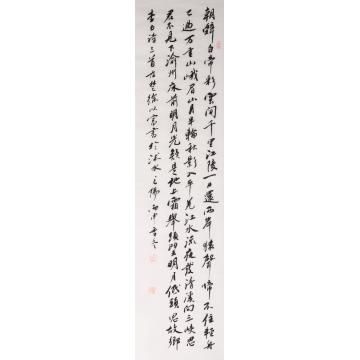 朝辭白帝彩雲間千里江陵一日還兩岸猿聲啼不住輕舟
已過万重山峨眉山月半輪秋影入平羌江水流夜發清溪向三峽思
君不見下渝州床前明月光疑是地上霜舉頭望明月低頭思故鄉
李白詩三首古楚徐以富書於水之陽丙申冬